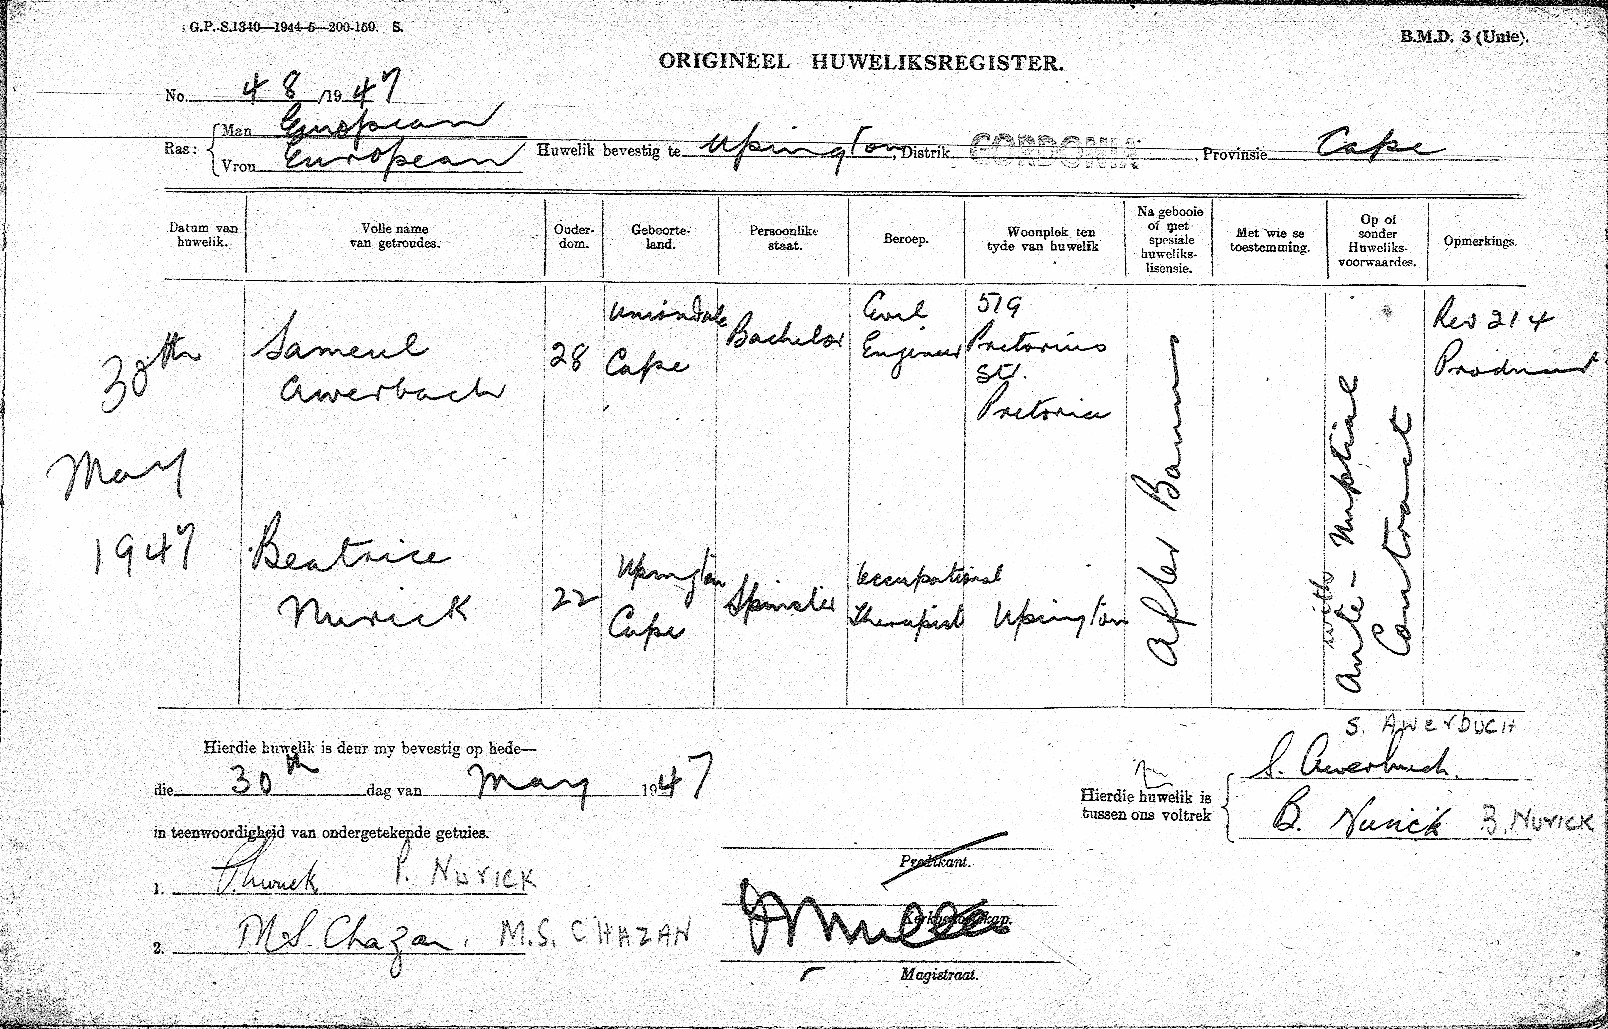 G.P.-S.1340—1944-5—200-150. S.
B.M.D. 3 (Unie).
ORIGINEEL HUWELIKSREGISTER.
No. 48 /1947
Ras: Man European
Vrou European
Huwelik bevestig te Upington, Distrik GORDONIA, Provinsie Cape
Datum van huwelik.
Volle name van getroudes.
Ouderdom.
Geboorteland.
Persoonlike staat.
Beroep.
Woonplek ten tyde van huwelik
Na gebooie of met spesiale huwelikslisensie.
Met wie se toestemming.
Op of sonder Huweliksvoorwaardes.
Opmerkings.
30th May 1947
Sameul Awerbach
28
Uniondale Cape
Bachelor
Civil Engineer
519 Pretorius Str. Pretoria
After Banns
with Ante-Nuptial Contract
Rev 214
Beatrice Nurick
22
Upington Cape
Spinster
Occupational Therapist
Upington
Hierdie huwelik is deur my bevestig op hede—
die 30th dag van May 1947
in teenwoordigheid van ondergetekende getuies.
1. P. Nurick P. NURICK
2. M.S. Chazan. M.S. CHAZAN
Predikant.
Magistraat.
Hierdie huwelik is tussen ons voltrek
S. AWERBUCH
S. Awerbuch.
B. Nurick B. NURICK